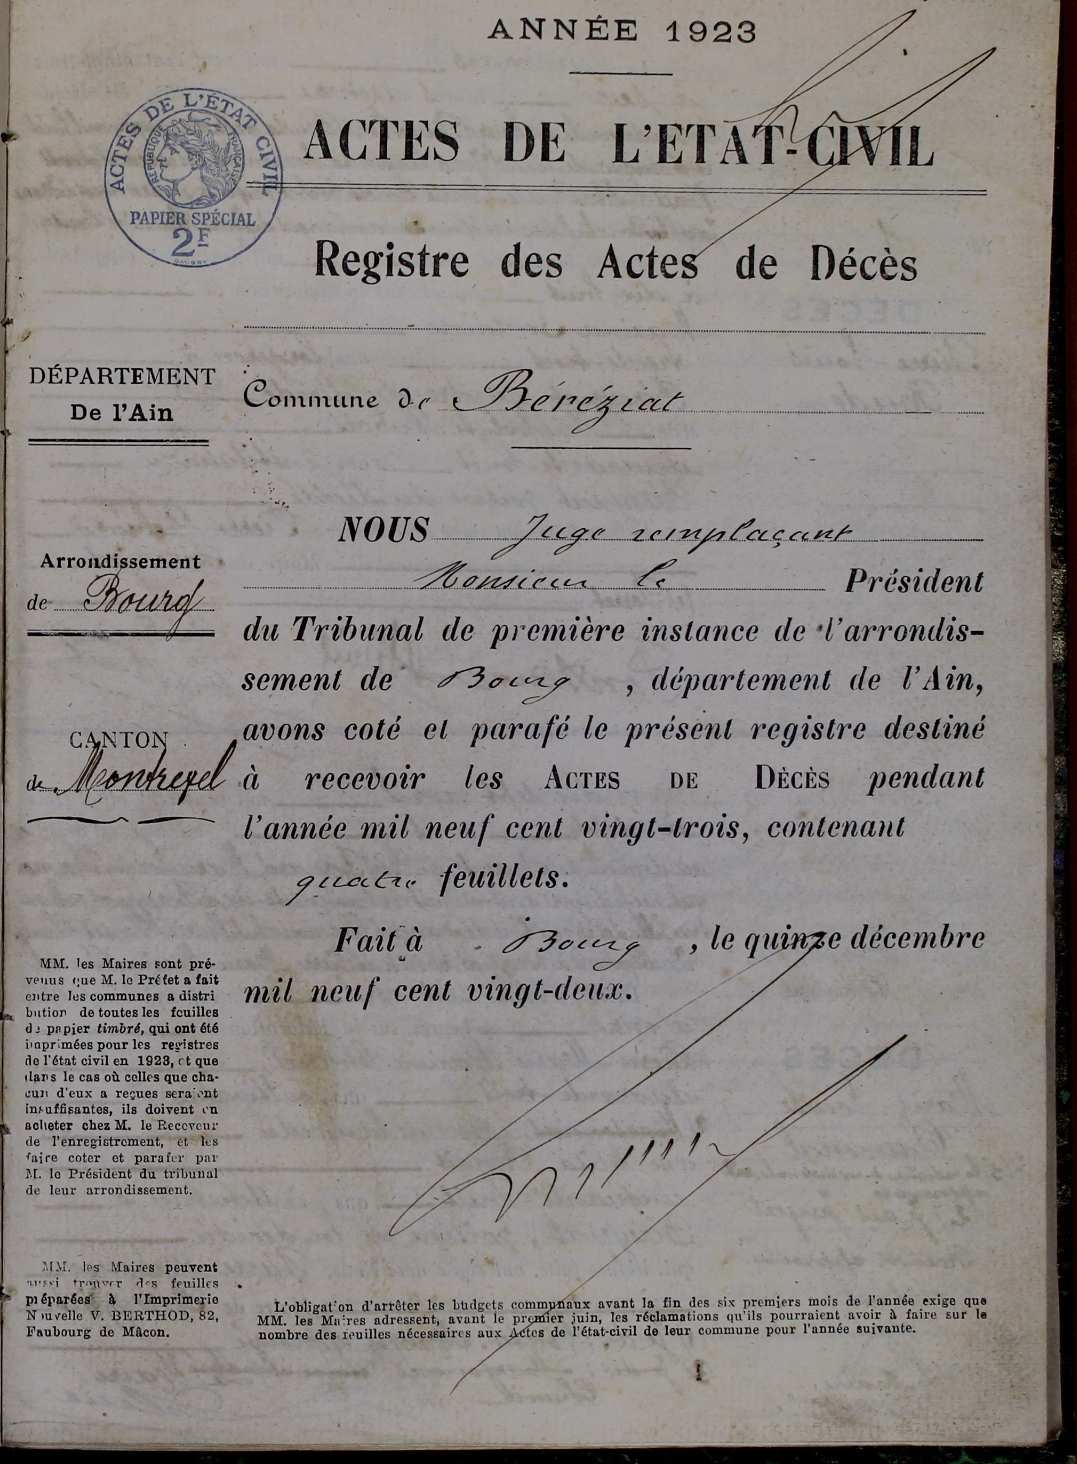 ANNÉE 1923
ACTES DE L'ETAT-CIVIL
ACTES DE L'ÉTAT CIVIL
RÉPUBLIQUE FRANÇAISE
PAPIER SPÉCIAL
2F
Registre des Actes de Décès
DÉPARTEMENT
De l'Ain
Commune de Béréziat
Arrondissement
de Bourg
CANTON
de Montrevel
NOUS Juge remplaçant
Monsieur le Président
du Tribunal de première instance de l'arrondis-
sement de Bourg, département de l'Ain,
avons coté et parafé le présent registre destiné
à recevoir les ACTES DE DÉCÈS pendant
l'année mil neuf cent vingt-trois, contenant
quatre feuillets.
Fait à Bourg, le quinze décembre
mil neuf cent vingt-deux.
MM. les Maires sont pré-
venus que M. le Préfet a fait
entre les communes a distri
bution de toutes les feuilles
de papier timbré, qui ont été
imprimées pour les registres
de l'état civil en 1923, et que
dans le cas où celles que cha-
cun d'eux a reçues seraient
insuffisantes, ils doivent en
acheter chez M. le Receveur
de l'enregistrement, et les
faire coter et parafer par
M. le Président du tribunal
de leur arrondissement.
MM. les Maires peuvent
aussi trouver des feuilles
préparées à l'Imprimerie
Nouvelle V. BERTHOD, 82,
Faubourg de Mâcon.
L'obligation d'arrêter les budgets communaux avant la fin des six premiers mois de l'année exige que
MM. les Maires adressent, avant le premier juin, les réclamations qu'ils pourraient avoir à faire sur le
nombre des feuilles nécessaires aux Actes de l'état-civil de leur commune pour l'année suivante.